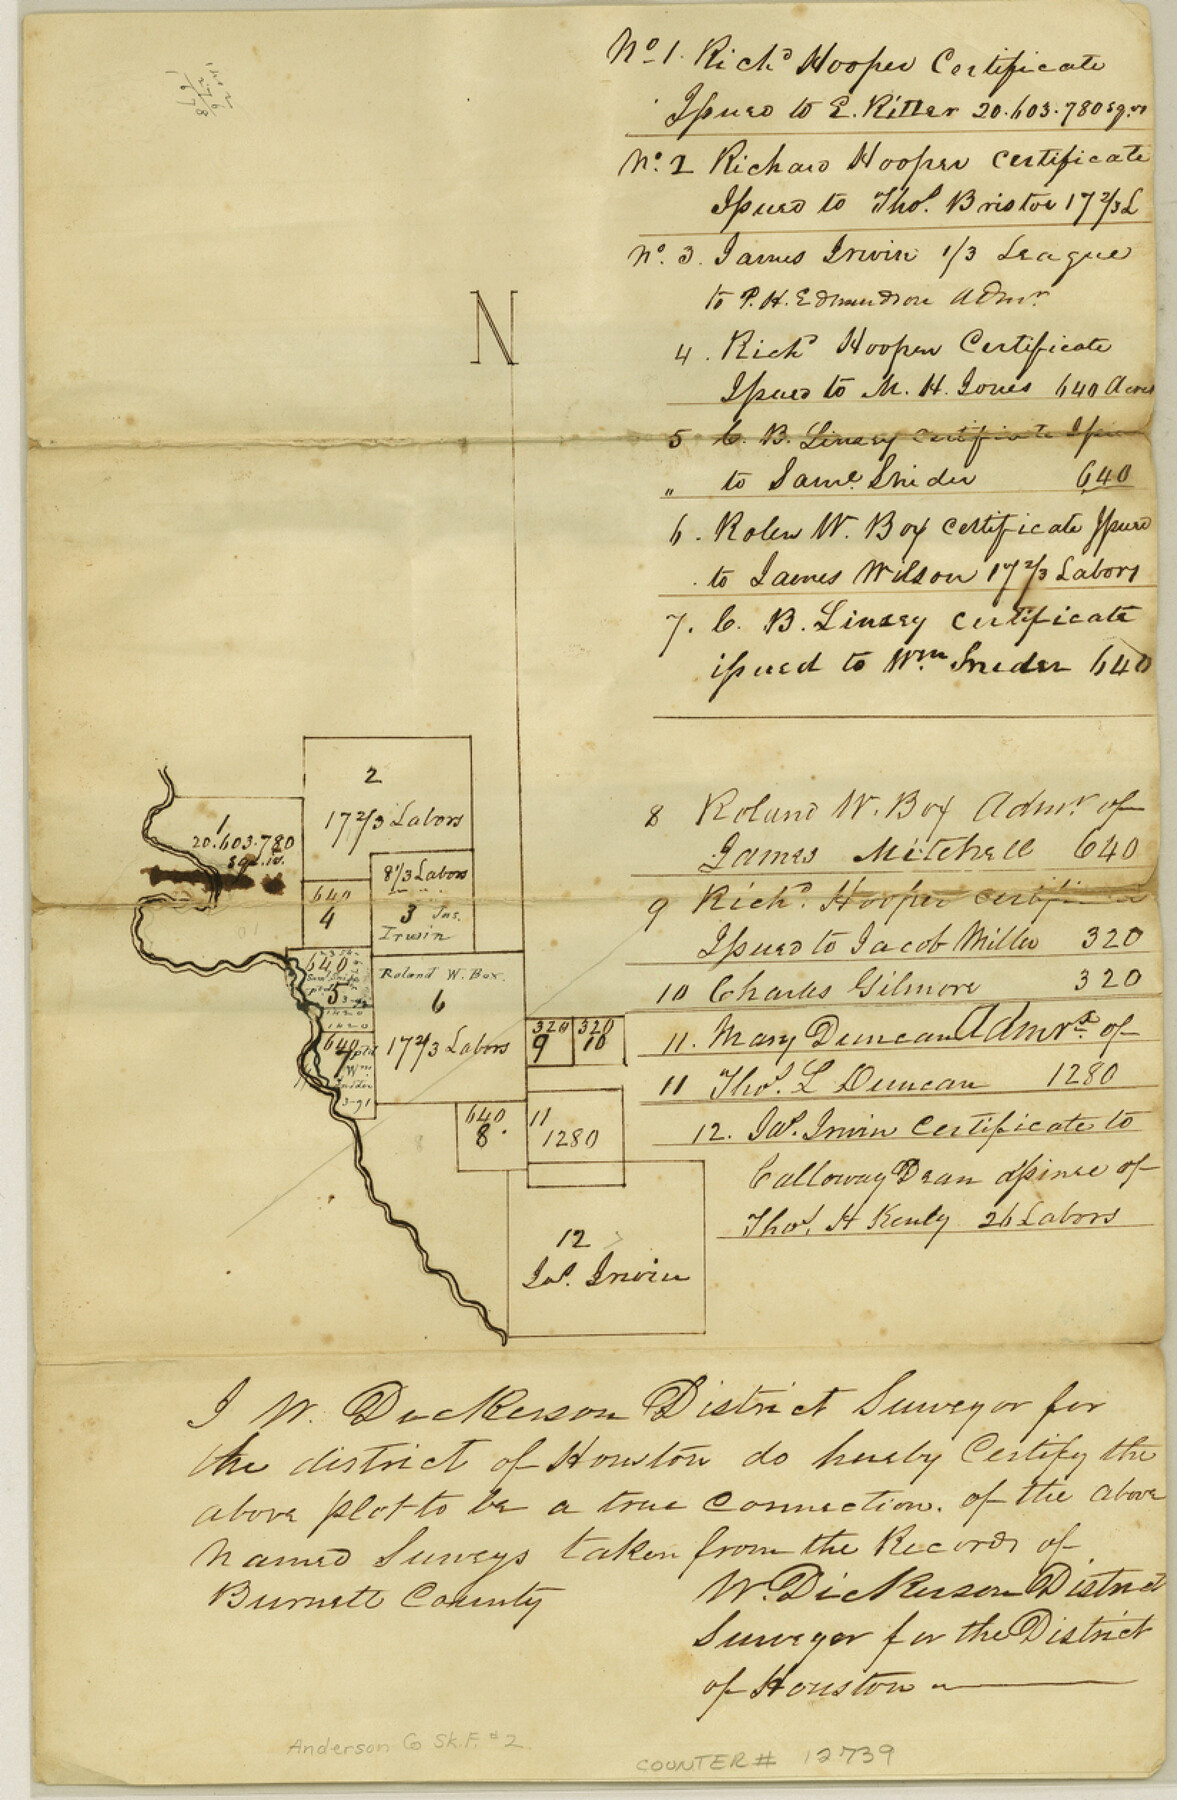 No 1. Richd Hooper Certificate
Issued to E. Ritter 20.603.780 sq. vs
No. 2 Richard Hooper certificate
Issued to Thos. Bristoe 17 2/3 L
No. 3. James Irwin 1/3 League
to P. H. Edmundson Admr.
4. Richd Hooper Certificate
Issued to M. H. Jones 640 Acres
5 C. B. Linsey Certificate Issu
" to Saml. Snider 640
6. Rolen W. Box certificate Issued
to James Wilson 17 2/3 Labors
7. C. B. Linsey certificate
issued to Wm. Sneder 640
8 Roland W. Box Admr. of
James Mitchell 640
9 Richd. Hooper certificate
Issued to Jacob Miller 320
10 Charles Gilmore 320
11. Mary Duncan Admrx of
11 Thos. L Duncan 1280
12. Jas. Irwin certificate to
Calloway Dean assinee of
Thos. H Kenly 26 Labors
N
2
17 2/3 Labors
1
20.603.780
sq. vs.
8 1/3 Labors
3 Jas.
Irwin
640
4
640
5
Roland W. Box.
6
17 2/3 Labors
1420
1420
640
7 ptd
Wm.
Snider
3-91
320
9
320
10
640
8.
11
1280
8
12
Jas. Irwin
I W. Dickerson District Surveyor for
the district of Houston do hereby Certify the
above plot to be a true connection. of the above
Named Surveys taken from the Records of
Burnett County
W. Dickerson District
Surveyor for the District
of Houston
Anderson Co Sk. F. # 2.
COUNTER # 12739